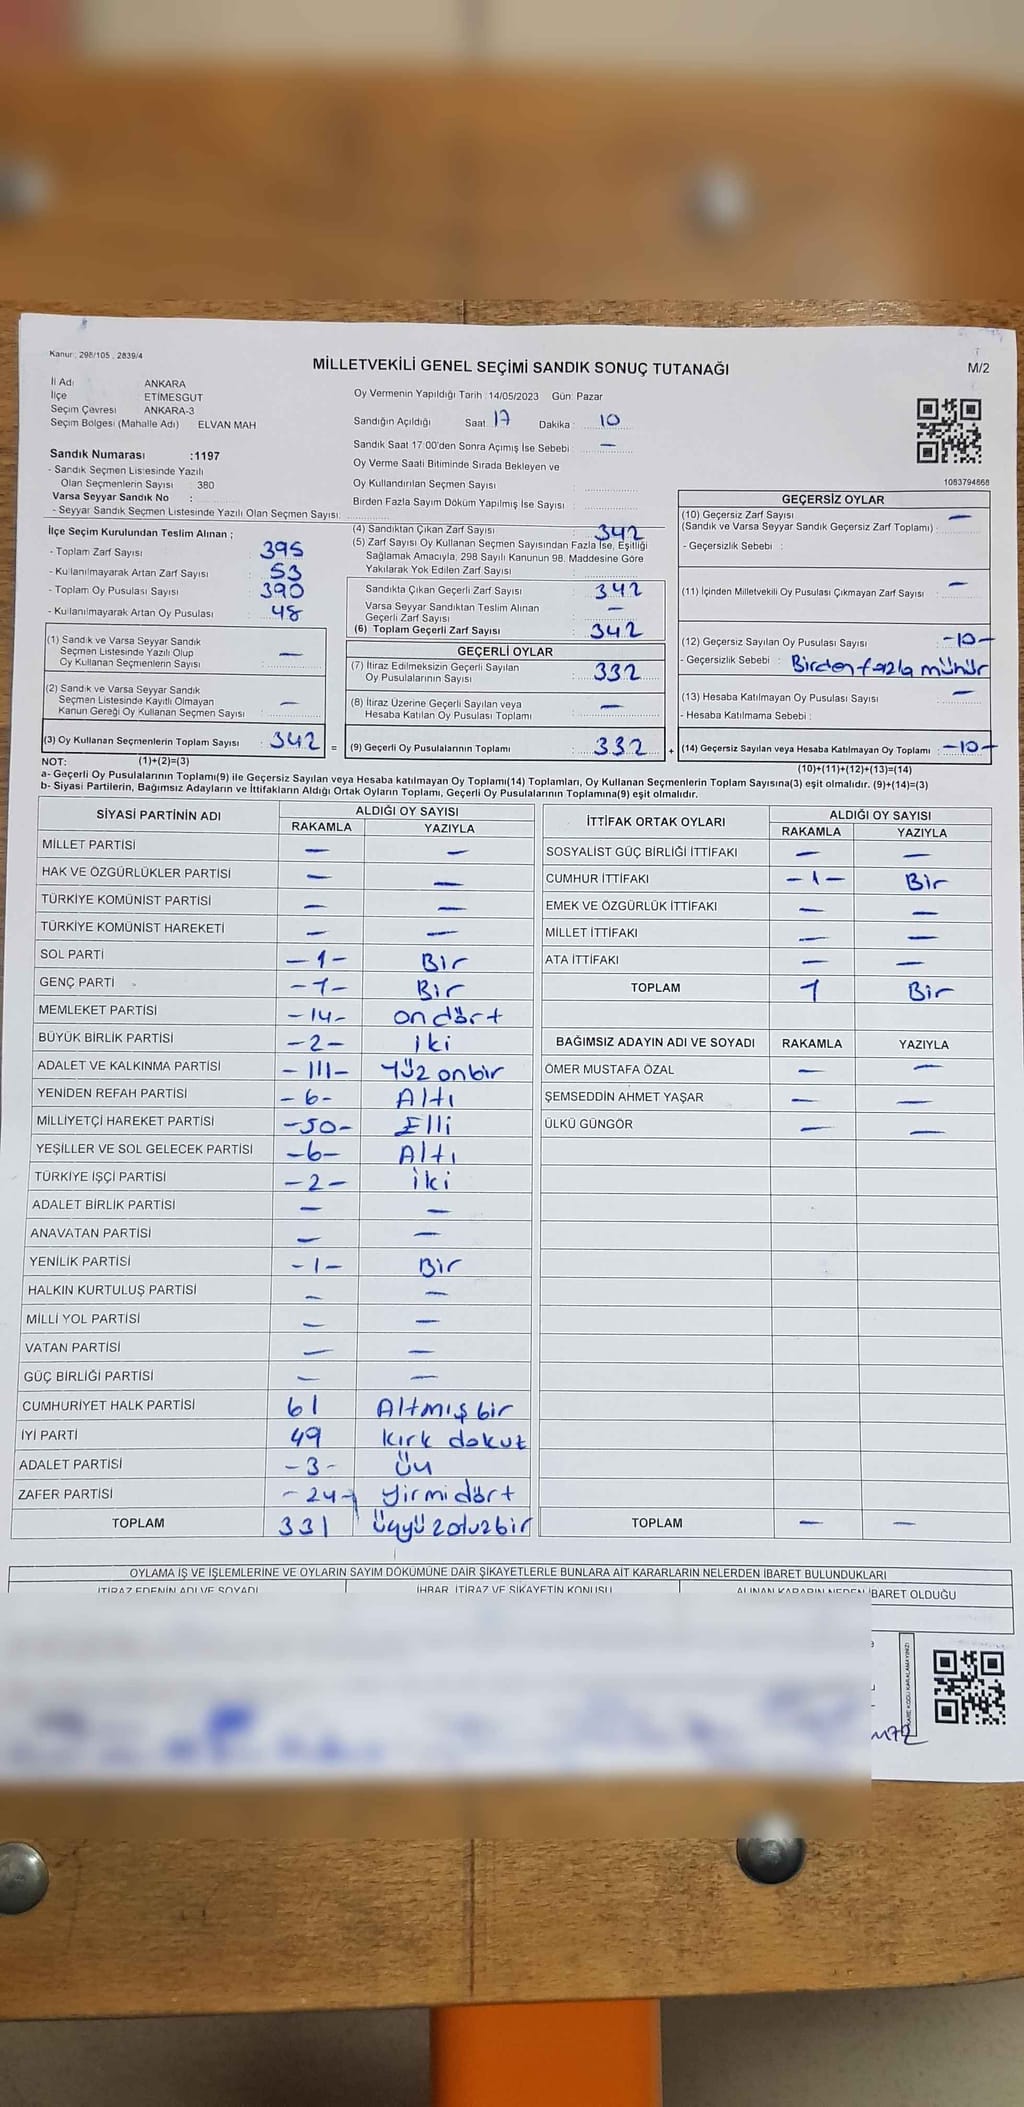 Kanun: 298/105, 2839/4
MİLLETVEKİLİ GENEL SEÇİMİ SANDIK SONUÇ TUTANAĞI
M/2
İl Adı ANKARA
İlçe ETİMESGUT
Seçim Çevresi ANKARA-3
Seçim Bölgesi (Mahalle Adı) ELVAN MAH
Sandık Numarası :1197
- Sandık Seçmen Listesinde Yazılı
Olan Seçmenlerin Sayısı : 380
Varsa Seyyar Sandık No :
- Seyyar Sandık Seçmen Listesinde Yazılı Olan Seçmen Sayısı:
Oy Vermenin Yapıldığı Tarih :14/05/2023 Gün: Pazar
Sandığın Açıldığı Saat: 17 Dakika: 10
Sandık Saat 17:00'den Sonra Açımış İse Sebebi: —
Oy Verme Saati Bitiminde Sırada Bekleyen ve
Oy Kullandırılan Seçmen Sayısı
Birden Fazla Sayım Döküm Yapılmış İse Sayısı :
1083794868
İlçe Seçim Kurulundan Teslim Alınan ;
- Toplam Zarf Sayısı : 395
- Kullanılmayarak Artan Zarf Sayısı : 53
- Toplam Oy Pusulası Sayısı : 390
- Kullanılmayarak Artan Oy Pusulası : 48
(1) Sandık ve Varsa Seyyar Sandık
Seçmen Listesinde Yazılı Olup
Oy Kullanan Seçmenlerin Sayısı : —
(2) Sandık ve Varsa Seyyar Sandık
Seçmen Listesinde Kayıtlı Olmayan
Kanun Gereği Oy Kullanan Seçmen Sayısı : —
(3) Oy Kullanan Seçmenlerin Toplam Sayısı : 342 =
(1)+(2)=(3)
(4) Sandıktan Çıkan Zarf Sayısı : 342
(5) Zarf Sayısı Oy Kullanan Seçmen Sayısından Fazla İse, Eşitliği
Sağlamak Amacıyla, 298 Sayılı Kanunun 98. Maddesine Göre
Yakılarak Yok Edilen Zarf Sayısı :
Sandıkta Çıkan Geçerli Zarf Sayısı : 342
Varsa Seyyar Sandıktan Teslim Alınan
Geçerli Zarf Sayısı : —
(6) Toplam Geçerli Zarf Sayısı : 342
GEÇERLİ OYLAR
(7) İtiraz Edilmeksizin Geçerli Sayılan
Oy Pusulalarının Sayısı : 332
(8) İtiraz Üzerine Geçerli Sayılan veya
Hesaba Katılan Oy Pusulası Toplamı : —
(9) Geçerli Oy Pusulalarının Toplamı : 332 +
GEÇERSİZ OYLAR
(10) Geçersiz Zarf Sayısı —
(Sandık ve Varsa Seyyar Sandık Geçersiz Zarf Toplamı) :
- Geçersizlik Sebebi :
(11) İçinden Milletvekili Oy Pusulası Çıkmayan Zarf Sayısı : —
(12) Geçersiz Sayılan Oy Pusulası Sayısı : -10-
- Geçersizlik Sebebi : Birden fazla mühür
(13) Hesaba Katılmayan Oy Pusulası Sayısı : —
- Hesaba Katılmama Sebebi :
(14) Geçersiz Sayılan veya Hesaba Katılmayan Oy Toplamı : -10-
(10)+(11)+(12)+(13)=(14)
NOT:
a- Geçerli Oy Pusulalarının Toplamı(9) ile Geçersiz Sayılan veya Hesaba katılmayan Oy Toplamı(14) Toplamları, Oy Kullanan Seçmenlerin Toplam Sayısına(3) eşit olmalıdır. (9)+(14)=(3)
b- Siyasi Partilerin, Bağımsız Adayların ve İttifakların Aldığı Ortak Oyların Toplamı, Geçerli Oy Pusulalarının Toplamına(9) eşit olmalıdır.
SİYASİ PARTİNİN ADI ALDIĞI OY SAYISI
RAKAMLA YAZIYLA
MİLLET PARTİSİ — —
HAK VE ÖZGÜRLÜKLER PARTİSİ — —
TÜRKİYE KOMÜNİST PARTİSİ — —
TÜRKİYE KOMÜNİST HAREKETİ — —
SOL PARTİ -1- Bir
GENÇ PARTİ -1- Bir
MEMLEKET PARTİSİ -14- on dört
BÜYÜK BİRLİK PARTİSİ -2- iki
ADALET VE KALKINMA PARTİSİ -111- Yüz onbir
YENİDEN REFAH PARTİSİ -6- Altı
MİLLİYETÇİ HAREKET PARTİSİ -50- Elli
YEŞİLLER VE SOL GELECEK PARTİSİ -6- Altı
TÜRKİYE İŞÇİ PARTİSİ -2- iki
ADALET BİRLİK PARTİSİ — —
ANAVATAN PARTİSİ — —
YENİLİK PARTİSİ -1- Bir
HALKIN KURTULUŞ PARTİSİ — —
MİLLİ YOL PARTİSİ — —
VATAN PARTİSİ — —
GÜÇ BİRLİĞİ PARTİSİ — —
CUMHURİYET HALK PARTİSİ 61 Altmış bir
İYİ PARTİ 49 kırk dokuz
ADALET PARTİSİ -3- Üç
ZAFER PARTİSİ -24- yirmidört
TOPLAM 331 üçyüzotuzbir
İTTİFAK ORTAK OYLARI ALDIĞI OY SAYISI
RAKAMLA YAZIYLA
SOSYALİST GÜÇ BİRLİĞİ İTTİFAKI — —
CUMHUR İTTİFAKI -1- Bir
EMEK VE ÖZGÜRLÜK İTTİFAKI — —
MİLLET İTTİFAKI — —
ATA İTTİFAKI — —
TOPLAM 1 Bir
BAĞIMSIZ ADAYIN ADI VE SOYADI RAKAMLA YAZIYLA
ÖMER MUSTAFA ÖZAL — —
ŞEMSEDDİN AHMET YAŞAR — —
ÜLKÜ GÜNGÖR — —
TOPLAM — —
OYLAMA İŞ VE İŞLEMLERİNE VE OYLARIN SAYIM DÖKÜMÜNE DAİR ŞİKAYETLERLE BUNLARA AİT KARARLARIN NELERDEN İBARET BULUNDUKLARI
İTİRAZ EDENİN ADI VE SOYADI İHBAR, İTİRAZ VE ŞİKAYETİN KONUSU ALINAN KARARIN NEDEN İBARET OLDUĞU